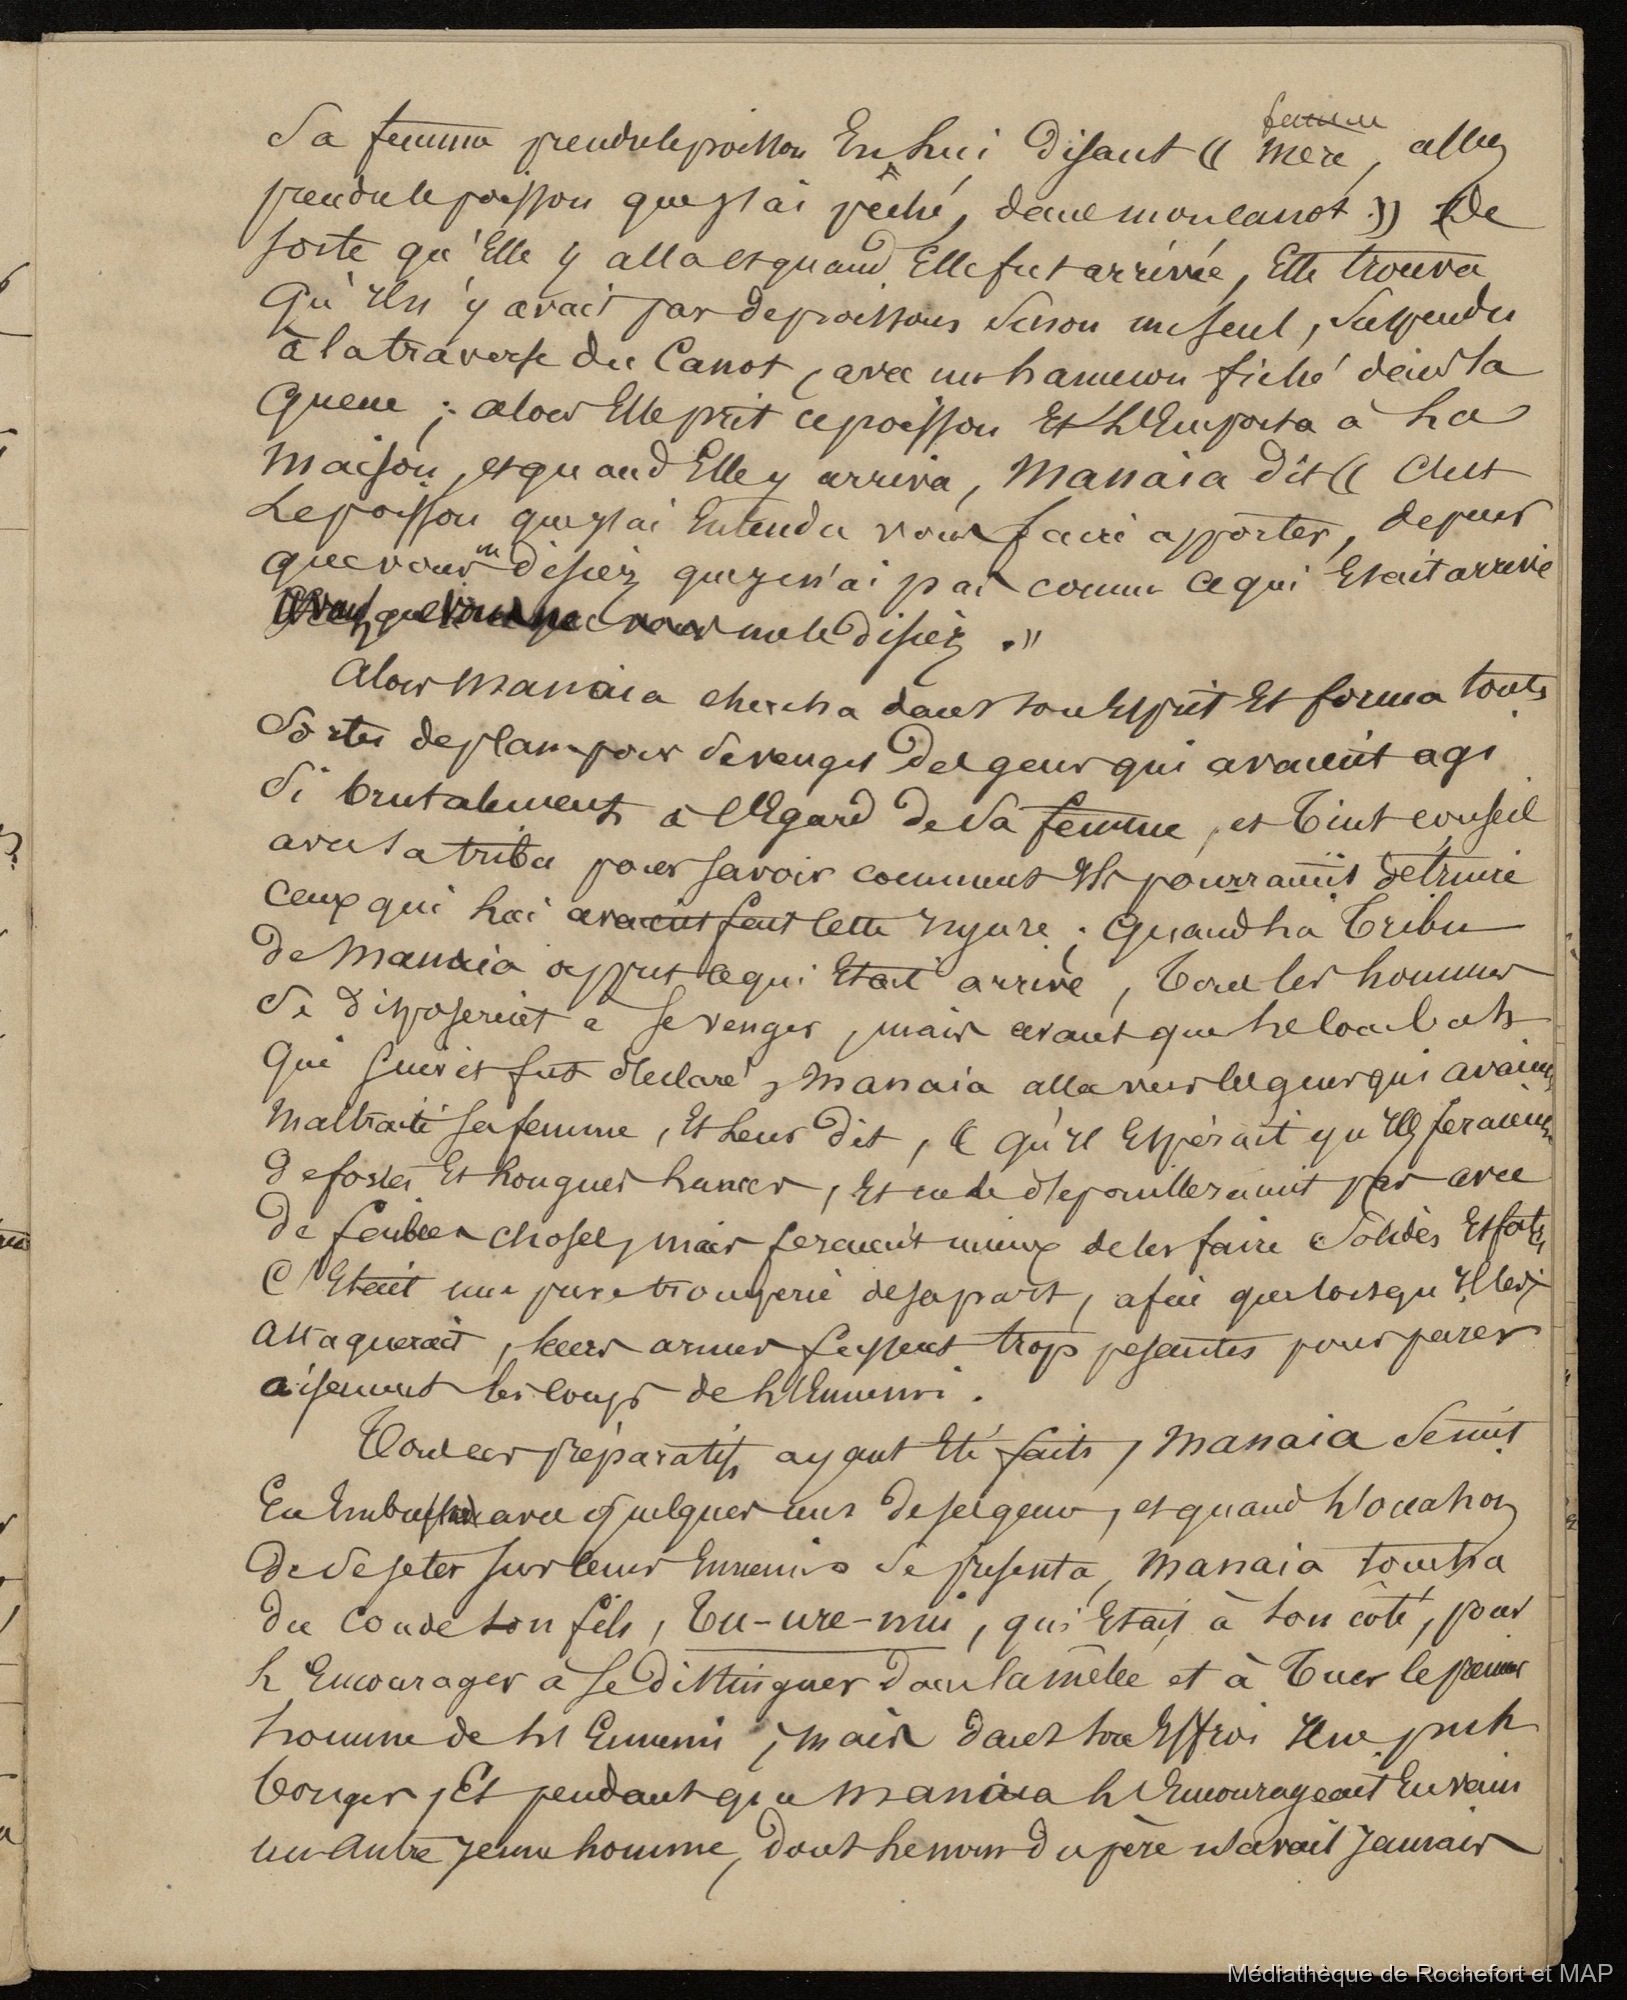 Sa femme prendre le poisson En Lui disant (( femme mère, allez
prendre le poisson que j'ai pêché, dans mon canot )) De
sorte qu'Elle y alla et quand Elle fut arrivée, Elle trouva
Qu'Il n'y avait pas de poissons sinon un seul, suspendu
à la traverse du Canot, avec un hameçon fiché dans la
Queue ; alors Elle prit ce poisson Et L'Emporta à La
Maison, et quand Elle y arriva, Manaia dit (( C'est
Le poisson que j'ai Entendu vous faire apporter, depuis
que vous m disiez que je n'ai pas connu ce qui Etait arrivé
me le disiez . ))
Alors Manaia chercha dans son Esprit Et forma toute
Sortes de plans pour se venger des gens qui avaient agi
Si brutalement à l'Egard de Sa femme, et Tint conseil
avec sa tribu pour savoir comment Ils pourraient détruire
Ceux qui Lui avaient fait cette Injure ; Quand La Tribu
de Manaia apprit ce qui Etait arrivé, Tous les hommes
Se disposèrent à se venger, mais avant que Le combat
Qui suivit fut déclaré, Manaia alla vers les gens qui avaient
Maltraité sa femme, Et Leur dit, (( Qu'Il Espérait qu'Ils feraient
De fortes Et Longues Lances, Et ne le dépouilleraient pas avec
De faibles choses, mais feraient mieux de les faire Solides Et fortes
C'Etait une pure tromperie de sa part, afin que lorsqu'Il les
Attaquerait, leurs armes fussent trop pesantes pour parer
aisément les coups de L'Ennemi .
Tous ces préparatifs ayant Eté faits, Manaia Se mit
En Embuscade avec Quelques uns de ses gens, et quand L'occasion
De Se jeter sur leurs Ennemis Se présenta, Manaia toucha
du coude son fils, Tu-ure-nui, qui Etait à son côté, pour
L'Encourager à se distinguer dans la mêlée et à Tuer le premier
homme de L'Ennemi ; mais dans son Effroi Il ne put
bouger, Et pendant que Manaia L'Encourageait En vain
un Autre Jeune homme, dont Le nom du père n'avait Jamais
Médiathèque de Rochefort et MAP